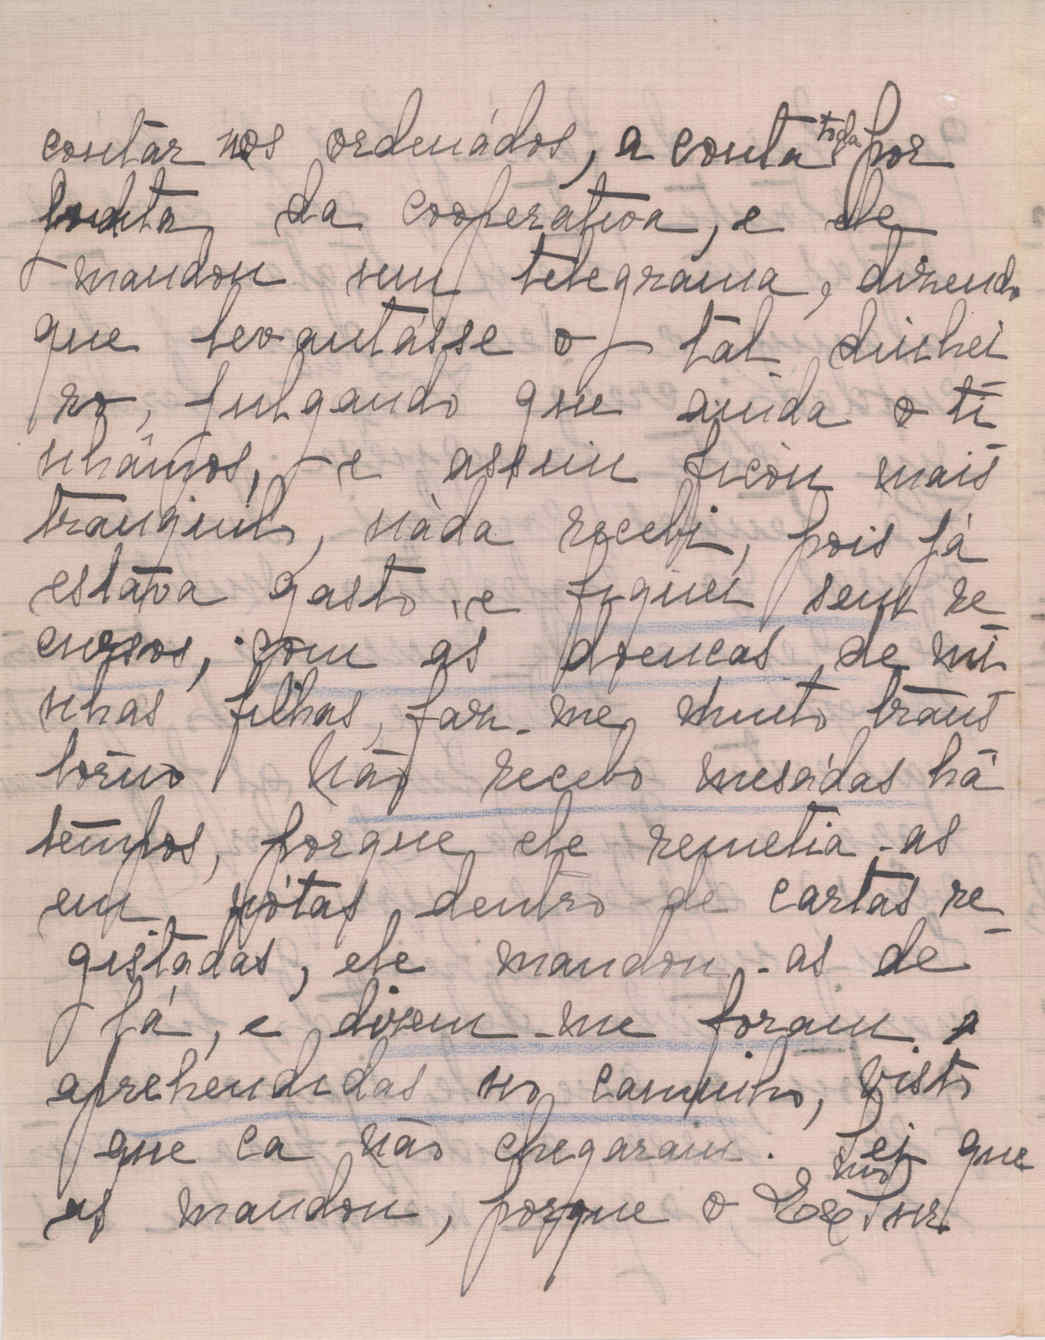 contar nos ordenádos, a conta toda por
junta da cooperativa, e ele
mandou um telegrama, dizendo
que levantásse o tal dinhei
ro, julgando que ainda o ti
nhâmos, e assim ficou mais
tranquilo, náda recebi, pois já
estava gasto, e fiquei sem re
cursos, com ás doencas de mi
nhas filhas, faz-me muito trans
torno! Não recebo mesádas há
tempos, porque ele remetia-as
em nótas dentro de cartas re
gistádas, ele mandou-as de
lá, e dizem-me foram
aprehendidas no caminho, visto
que ca não chegaram. Sei que
as mandou, porque o Exmo Snr.